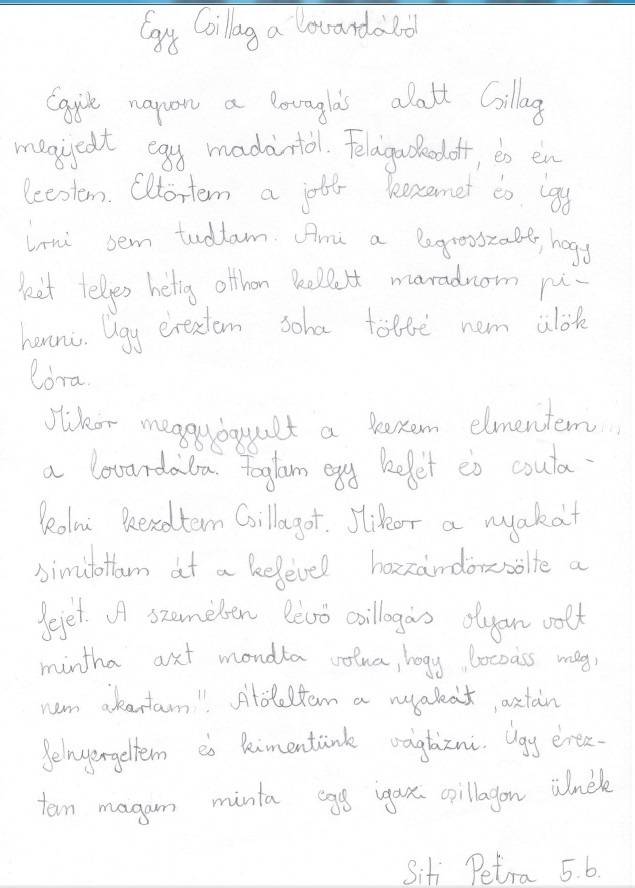 Egy Csillag a lovardából
Egyik napon a lovaglás alatt Csillag
megijedt egy madártól. Felágaskodott, és én
leestem. Eltörtem a jobb kezemet és így
írni sem tudtam. Ami a legrosszabb, hogy
két teljes hétig otthon kellett maradnom pi-
henni. Úgy éreztem soha többé nem ülök
lóra.
Mikor meggyógyult a kezem elmentem
a lovardába. Fogtam egy kefét és csuta-
kolni kezdtem Csillagot. Mikor a nyakát
simítottam át a kefével hozzámdörzsölte a
fejét. A szemében lévő csillogás olyan volt
mintha azt mondta volna, hogy „bocsáss meg,
nem akartam!" Átöleltem a nyakát, aztán
felnyergeltem és kimentünk vágtázni. Úgy érez-
tem magam minta egy igazi csillagon ülnék
Siti Petra 5.b.